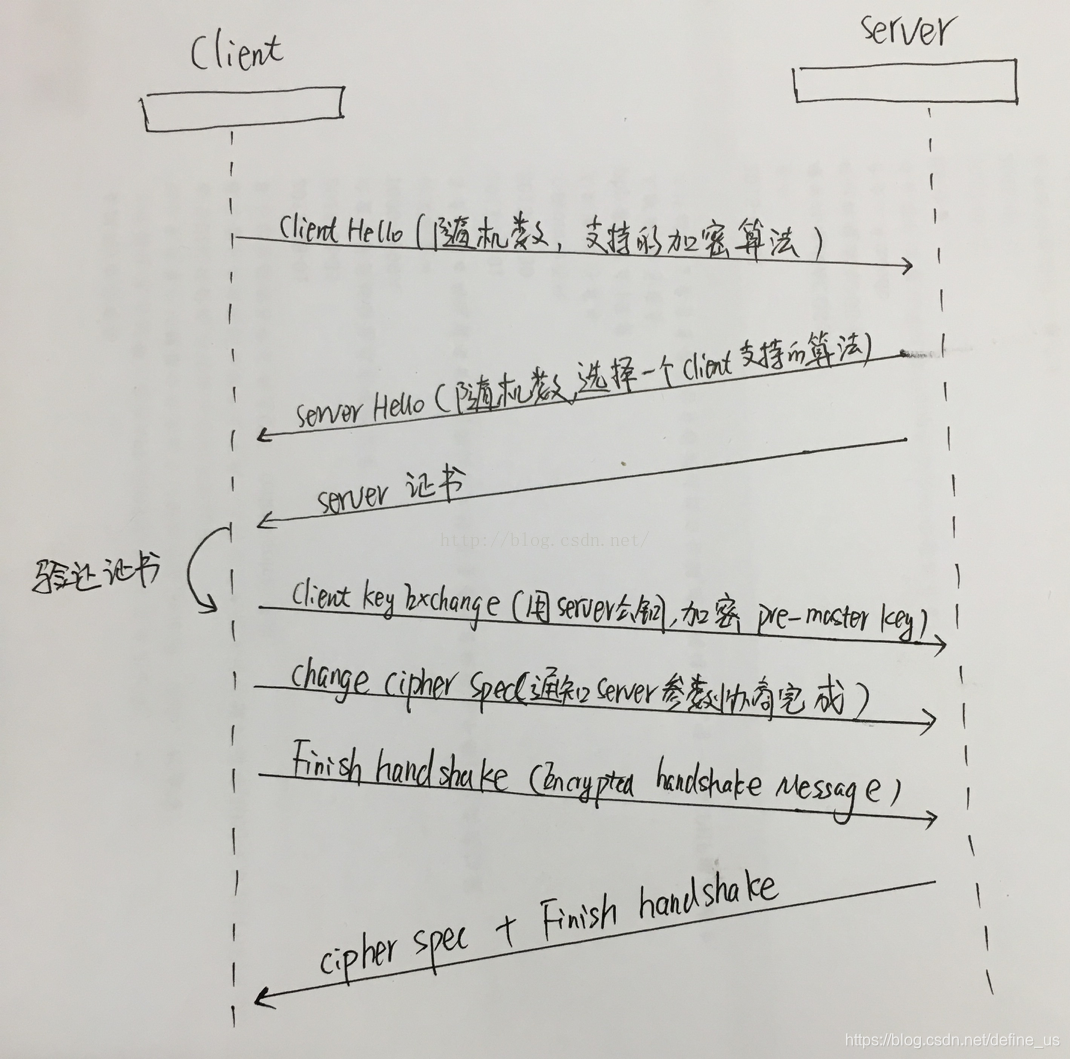 Client
server
Client Hello (随机数, 支持的加密算法)
server Hello (随机数,选择一个client支持的算法)
server 证书
http://blog.csdn.net/
验证证书
Client key Exchange (用server公钥,加密 pre-master key)
change cipher spec(通知server参数协商完成)
Finish handshake (Encrypted handshake Message)
cipher spec + Finish handshake
https://blog.csdn.net/define_us